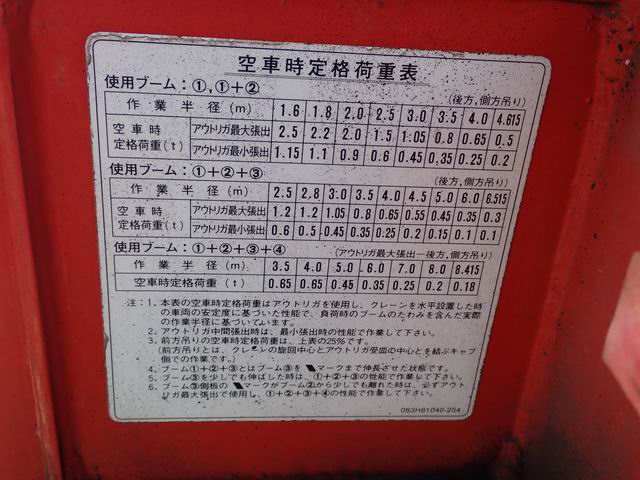 空車時定格荷重表
使用ブーム:①,①+②
(後方,側方吊り)
作業半径(m) 1.6 1.8 2.0 2.5 3.0 3.5 4.0 4.615
空車時定格荷重(t) アウトリガ最大張出 2.5 2.2 2.0 1.5 1.05 0.8 0.65 0.5
アウトリガ最小張出 1.15 1.1 0.9 0.6 0.45 0.35 0.25 0.2
使用ブーム:①+②+③
(後方,側方吊り)
作業半径(m) 2.5 2.8 3.0 3.5 4.0 4.5 5.0 6.0 6.515
空車時定格荷重(t) アウトリガ最大張出 1.2 1.2 1.05 0.8 0.65 0.55 0.45 0.35 0.3
アウトリガ最小張出 0.6 0.5 0.45 0.35 0.25 0.2 0.15 0.1 0.1
使用ブーム:①+②+③+④
(アウトリガ最大張出ー後方,側方吊り)
作業半径(m) 3.5 4.0 5.0 6.0 7.0 8.0 8.415
空車時定格荷重(t) 0.65 0.65 0.45 0.35 0.25 0.2 0.18
注:1.本表の空車時定格荷重はアウトリガを使用し、クレーンを水平設置した時
の車両の安定度に基づいた性能で、負荷時のブームのたわみを含んだ実際
の作業半径に基づいています。
2.アウトリガ中間張出時は、最小張出時の性能で作業して下さい。
3.前方吊りの空車時定格荷重は、上表の25%です。
(前方吊りとは、クレーンの旋回中心とアウトリガ受皿の中心とを結ぶキャブ
側での作業です。)
4.ブーム①+②+③とはブーム③を◥マークまで伸長させた状態です。
5.ブーム③を少しでも伸ばした時は、①+②+③の性能で作業して下さい。
6.ブーム③側板の◥マークがブーム②から少しでも離れた時は、必ずアウト
リガ最大張出で使用し、①+②+③+④の性能で作業して下さい。
083H81040-254